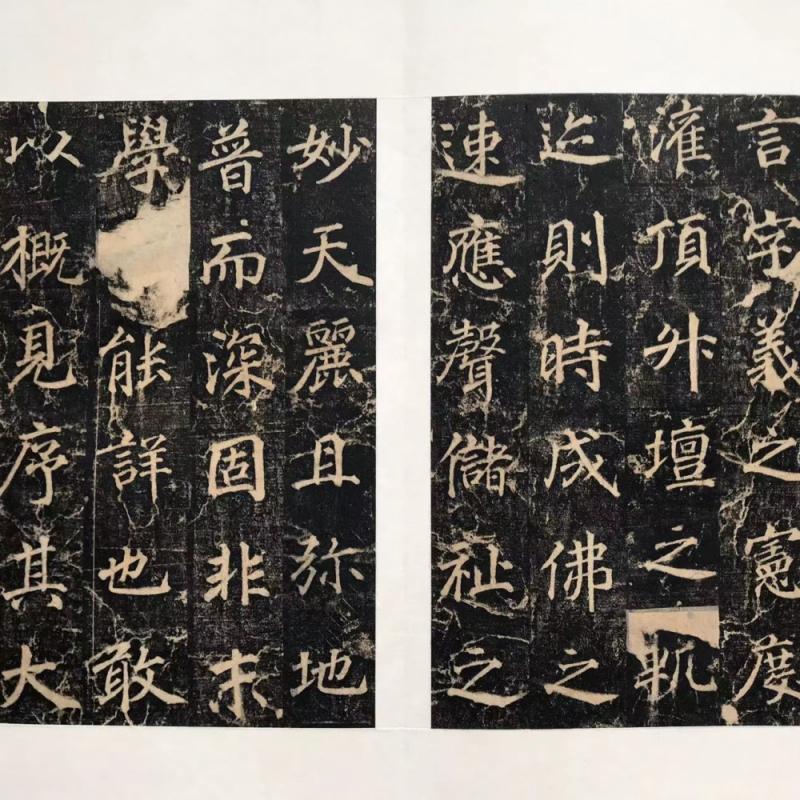 言字義之憲度
灌頂升壇之軌
迹則時成佛之
速應聲儲祉之
妙天麗且弥地
普而深固非末
學能詳也敢
以概見序其大